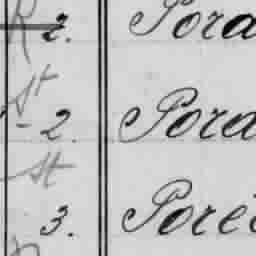 R 2. Pora
St
- 2. Pora
St
3. Pore